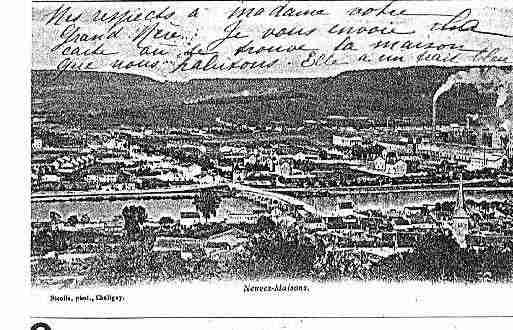 Mes respects à madame votre
Grand Mère. Je vous envoie cette
carte où se trouve la maison
que nous habitons. Elle a un trait bleu
Neuves-Maisons.
phot., Chaligny.